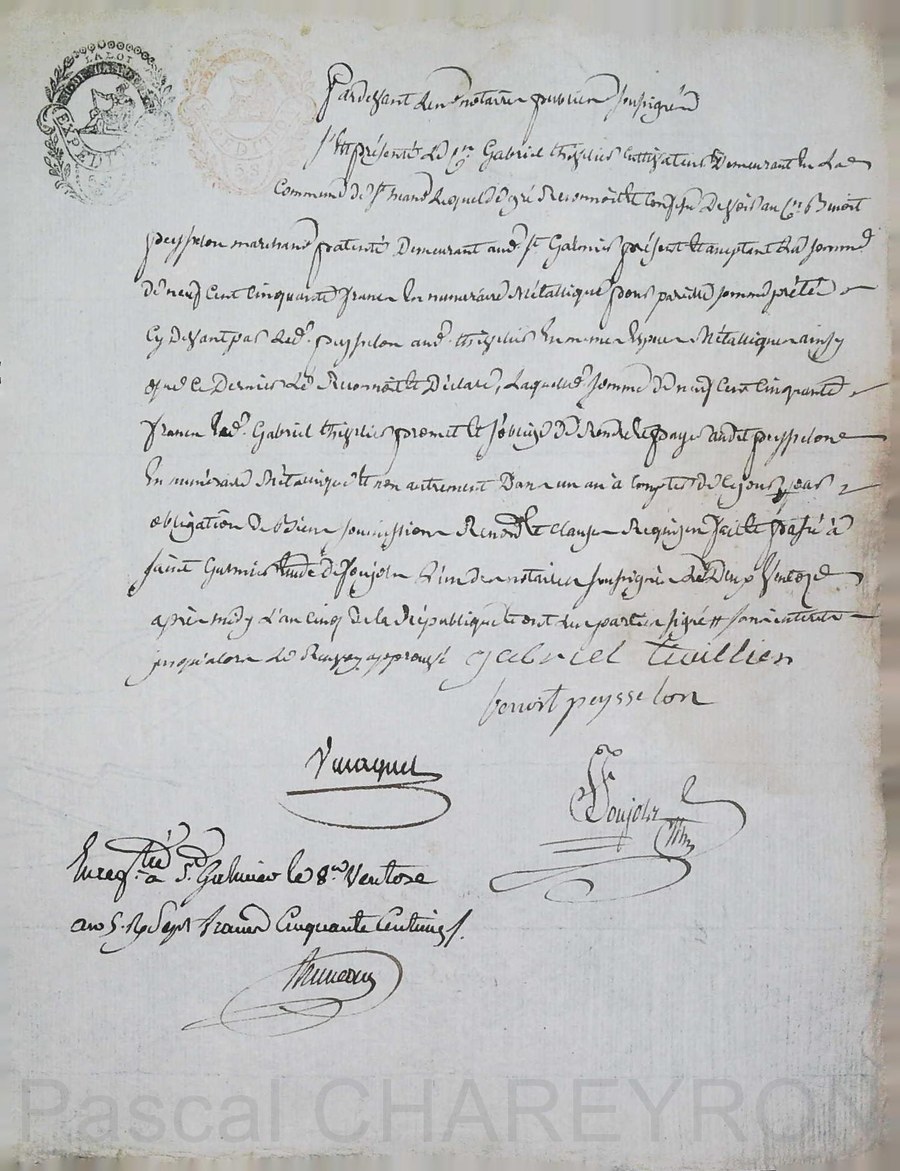 LA LOI
EXPEDITION
Pardevant les notaires publics soussignés
S'est présenté le Cen Gabriel cultivateur demeurant en la
Commune de St lequel de gré reconnoit et confesse devoir au Cen Benoit
peysselon marchand patenté demeurant aud. St Galmier présent et acceptant la somme
de neuf cent cinquante francs en numéraire métallique pour pareille somme prêtée
cy devant par led. peysselon aud. en même espèce métallique ainsy
que ce dernier le reconnoit et déclare, laquelle somme de neuf cent cinquante
francs led. Gabriel promet et s'oblige de rendre et payer audit peysselon
en numéraire métallique et non autrement dans un an à compter de ce jour par
obligation de biens soumissions renonc. et clauses requises fait et passé à
Saint Galmier étude de Soujolz l'un des notaires soussignés le deux Ventoze
après midy l'an cinq de la république et ont les parties signé # sans intérêts
jusqu'alors le renvoy approuvé gabriel
benoit peysselon
Soujolz Nre
Enregtré à St Galmier le 8 Ventose
an 5. R. Sept francs Cinquante Centimes
Pascal CHAREYRON